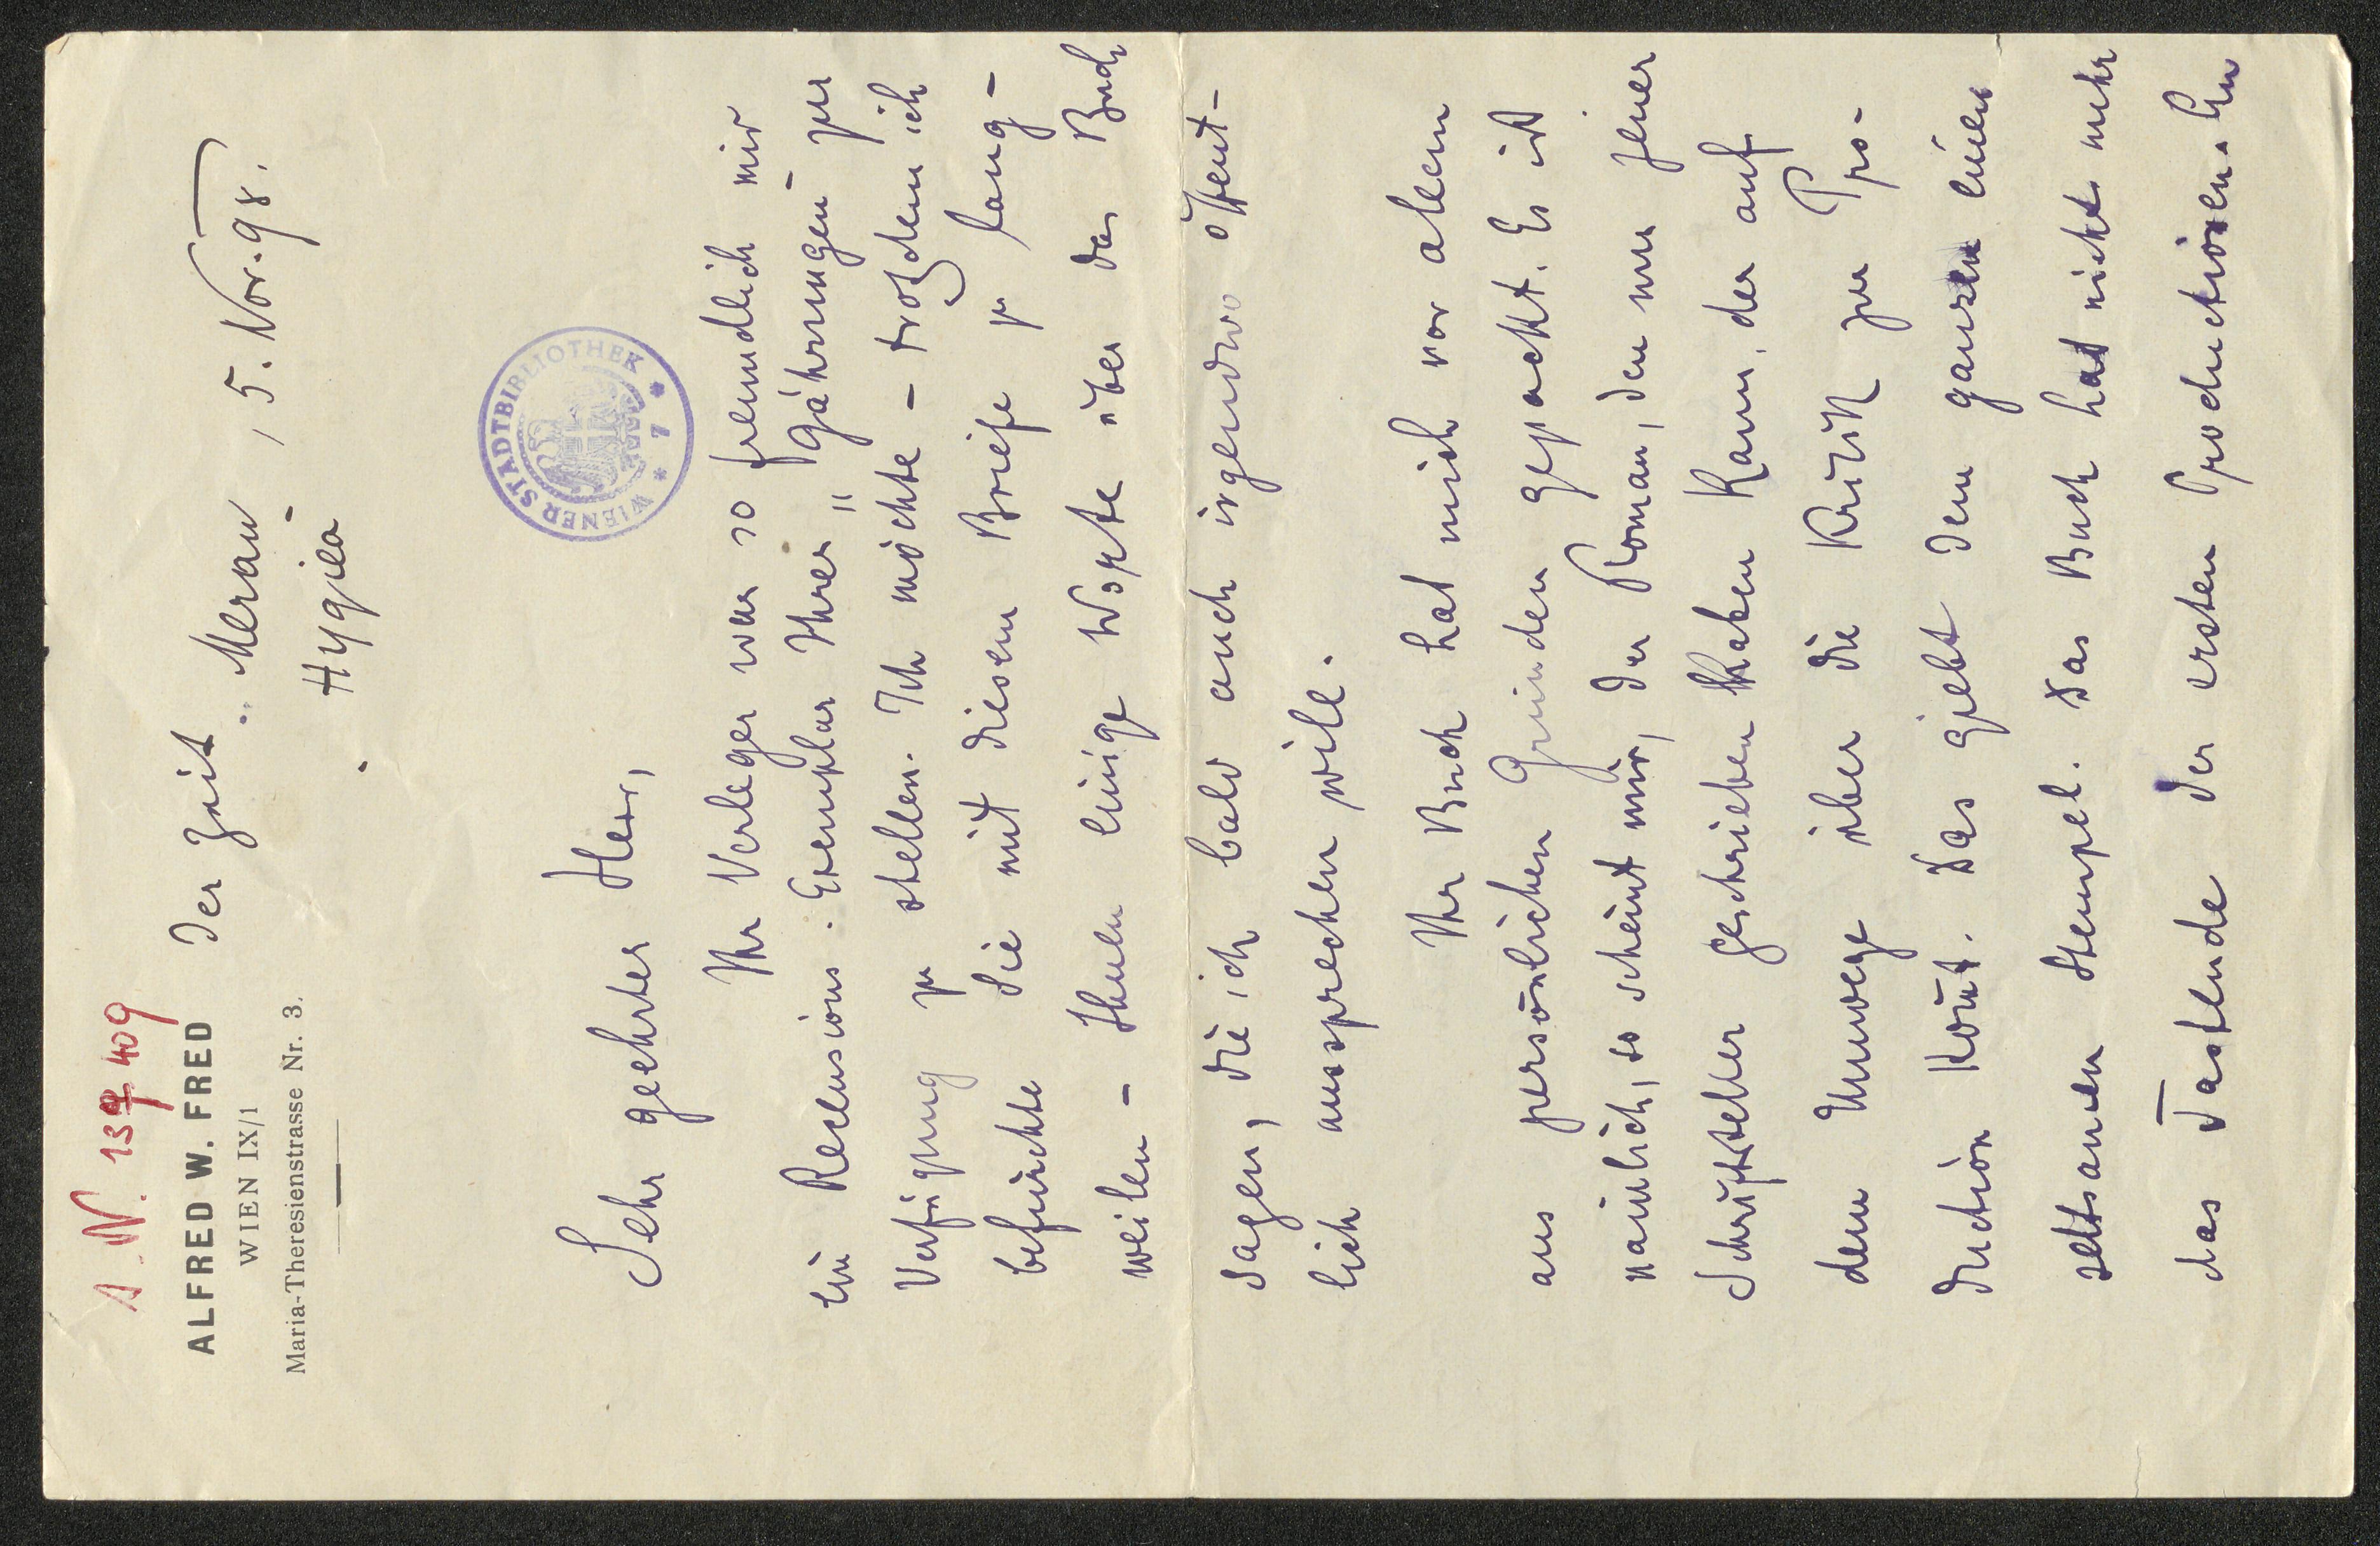 A. N. 137409
ALFRED W. FRED
WIEN IX/1
Maria-Theresienstrasse Nr. 3.
Der Zeit: Meran, 5. Nov. 98.
Hygiea
WIENER STADTBIBLIOTHEK * 7 *
Sehr geehrter Herr,
Ihr Verleger war so freundlich mir
ein Recensions-Exemplar Ihrer "Gährungen" zur
Verfügung zu stellen. Ich möchte – trotzdem ich
befürchte Sie mit diesem Briefe zu lang-
weilen – Ihnen einige Worte über das Buch
sagen, die ich bald auch irgendwo öffent-
lich aussprechen will.
Ihr Buch hat mich vor allem
aus persönlichen Gründen gepackt. Es ist
nämlich, so scheint mir, der Roman, den nur jener
Schriftsteller geschrieben haben kann, der auf
dem Umwege über die Kritik zur Pro-
duction kömt. Das giebt dem ganzen einen
seltsamen Stempel. Das Buch hat nichts mehr
das Tastende der ersten Productionen.